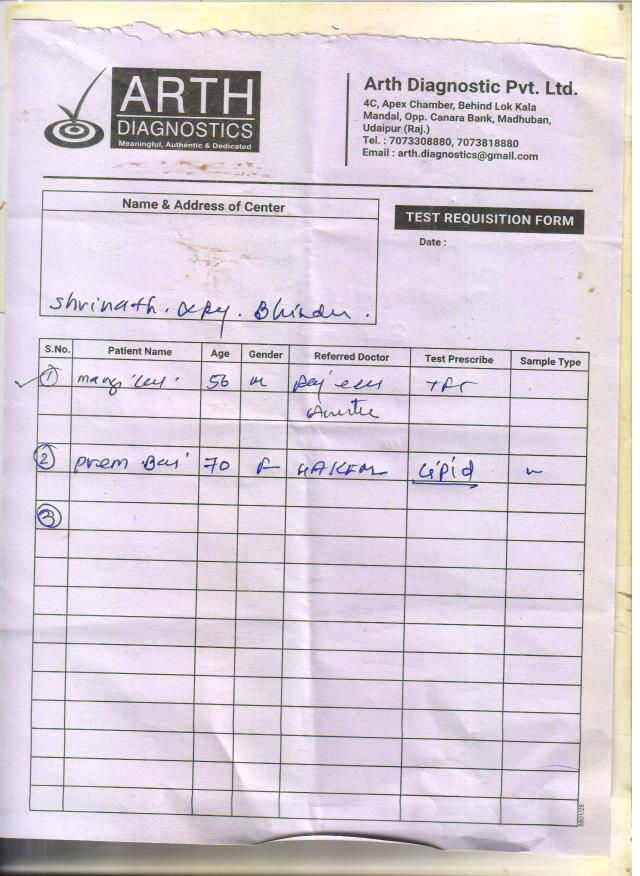 ARTH
DIAGNOSTICS
Meaningful, Authentic & Dedicated
Arth Diagnostic Pvt. Ltd.
4C, Apex Chamber, Behind Lok Kala
Mandal, Opp. Canara Bank, Madhuban,
Udaipur (Raj.)
Tel. : 7073308880, 7073818880
Email : arth.diagnostics@gmail.com
Name & Address of Center
TEST REQUISITION FORM
Date :
Shrinath. Bhinder.
S.No. Patient Name Age Gender Referred Doctor Test Prescribe Sample Type
1 mangi 56 m
2 prem Bai 70 F HAKEM Lipid
3